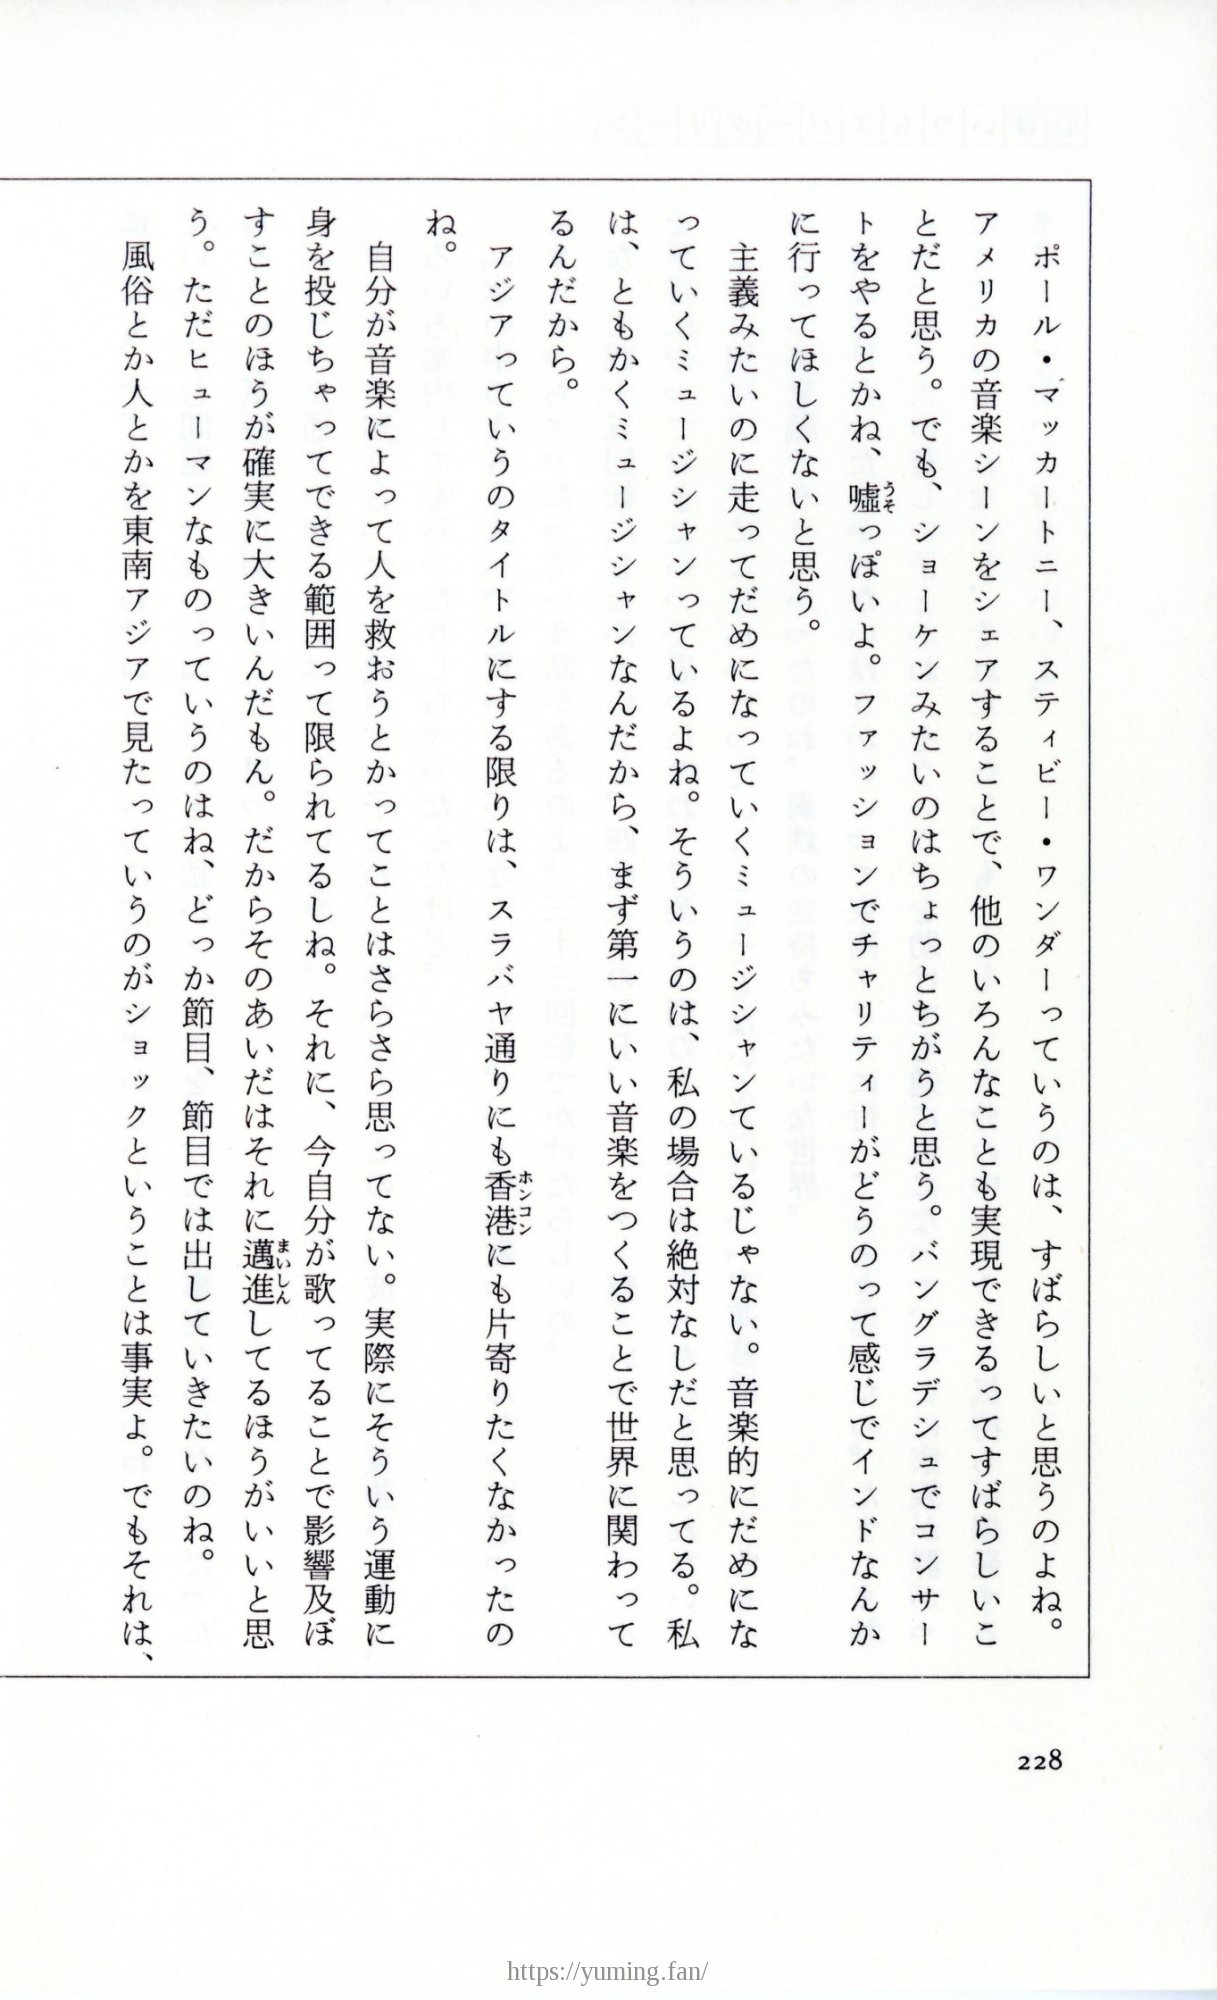 ポール・マッカートニー、スティビー・ワンダーっていうのは、すばらしいと思うのよね。
アメリカの音楽シーンをシェアすることで、他のいろんなことも実現できるってすばらしいこ
とだと思う。でも、ショーケンみたいのはちょっとちがうと思う。バングラデシュでコンサー
トをやるとかね、嘘っぽいよ。ファッションでチャリティーがどうのって感じでインドなんか
に行ってほしくないと思う。
主義みたいのに走ってだめになっていくミュージシャンているじゃない。音楽的にだめにな
っていくミュージシャンっているよね。そういうのは、私の場合は絶対なしだと思ってる。私
は、ともかくミュージシャンなんだから、まず第一にいい音楽をつくることで世界に関わって
るんだから。
アジアっていうのタイトルにする限りは、スラバヤ通りにも香港にも片寄りたくなかったの
ね。
自分が音楽によって人を救おうとかってことはさらさら思ってない。実際にそういう運動に
身を投じちゃってできる範囲って限られてるしね。それに、今自分が歌ってることで影響及ぼ
すことのほうが確実に大きいんだもん。だからそのあいだはそれに邁進してるほうがいいと思
う。ただヒューマンなものっていうのはね、どっか節目、節目では出していきたいのね。
風俗とか人とかを東南アジアで見たっていうのがショックということは事実よ。でもそれは、
228
https://yuming.fan/